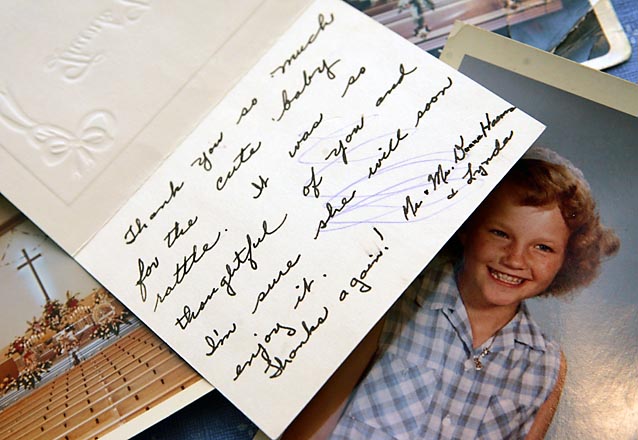 Thank you so much
for the cute baby
rattle. It was so
thoughtful of you and
I'm sure she will soon
enjoy it.
Thanks again!
Mr. & Mrs. Donna
& Lynda